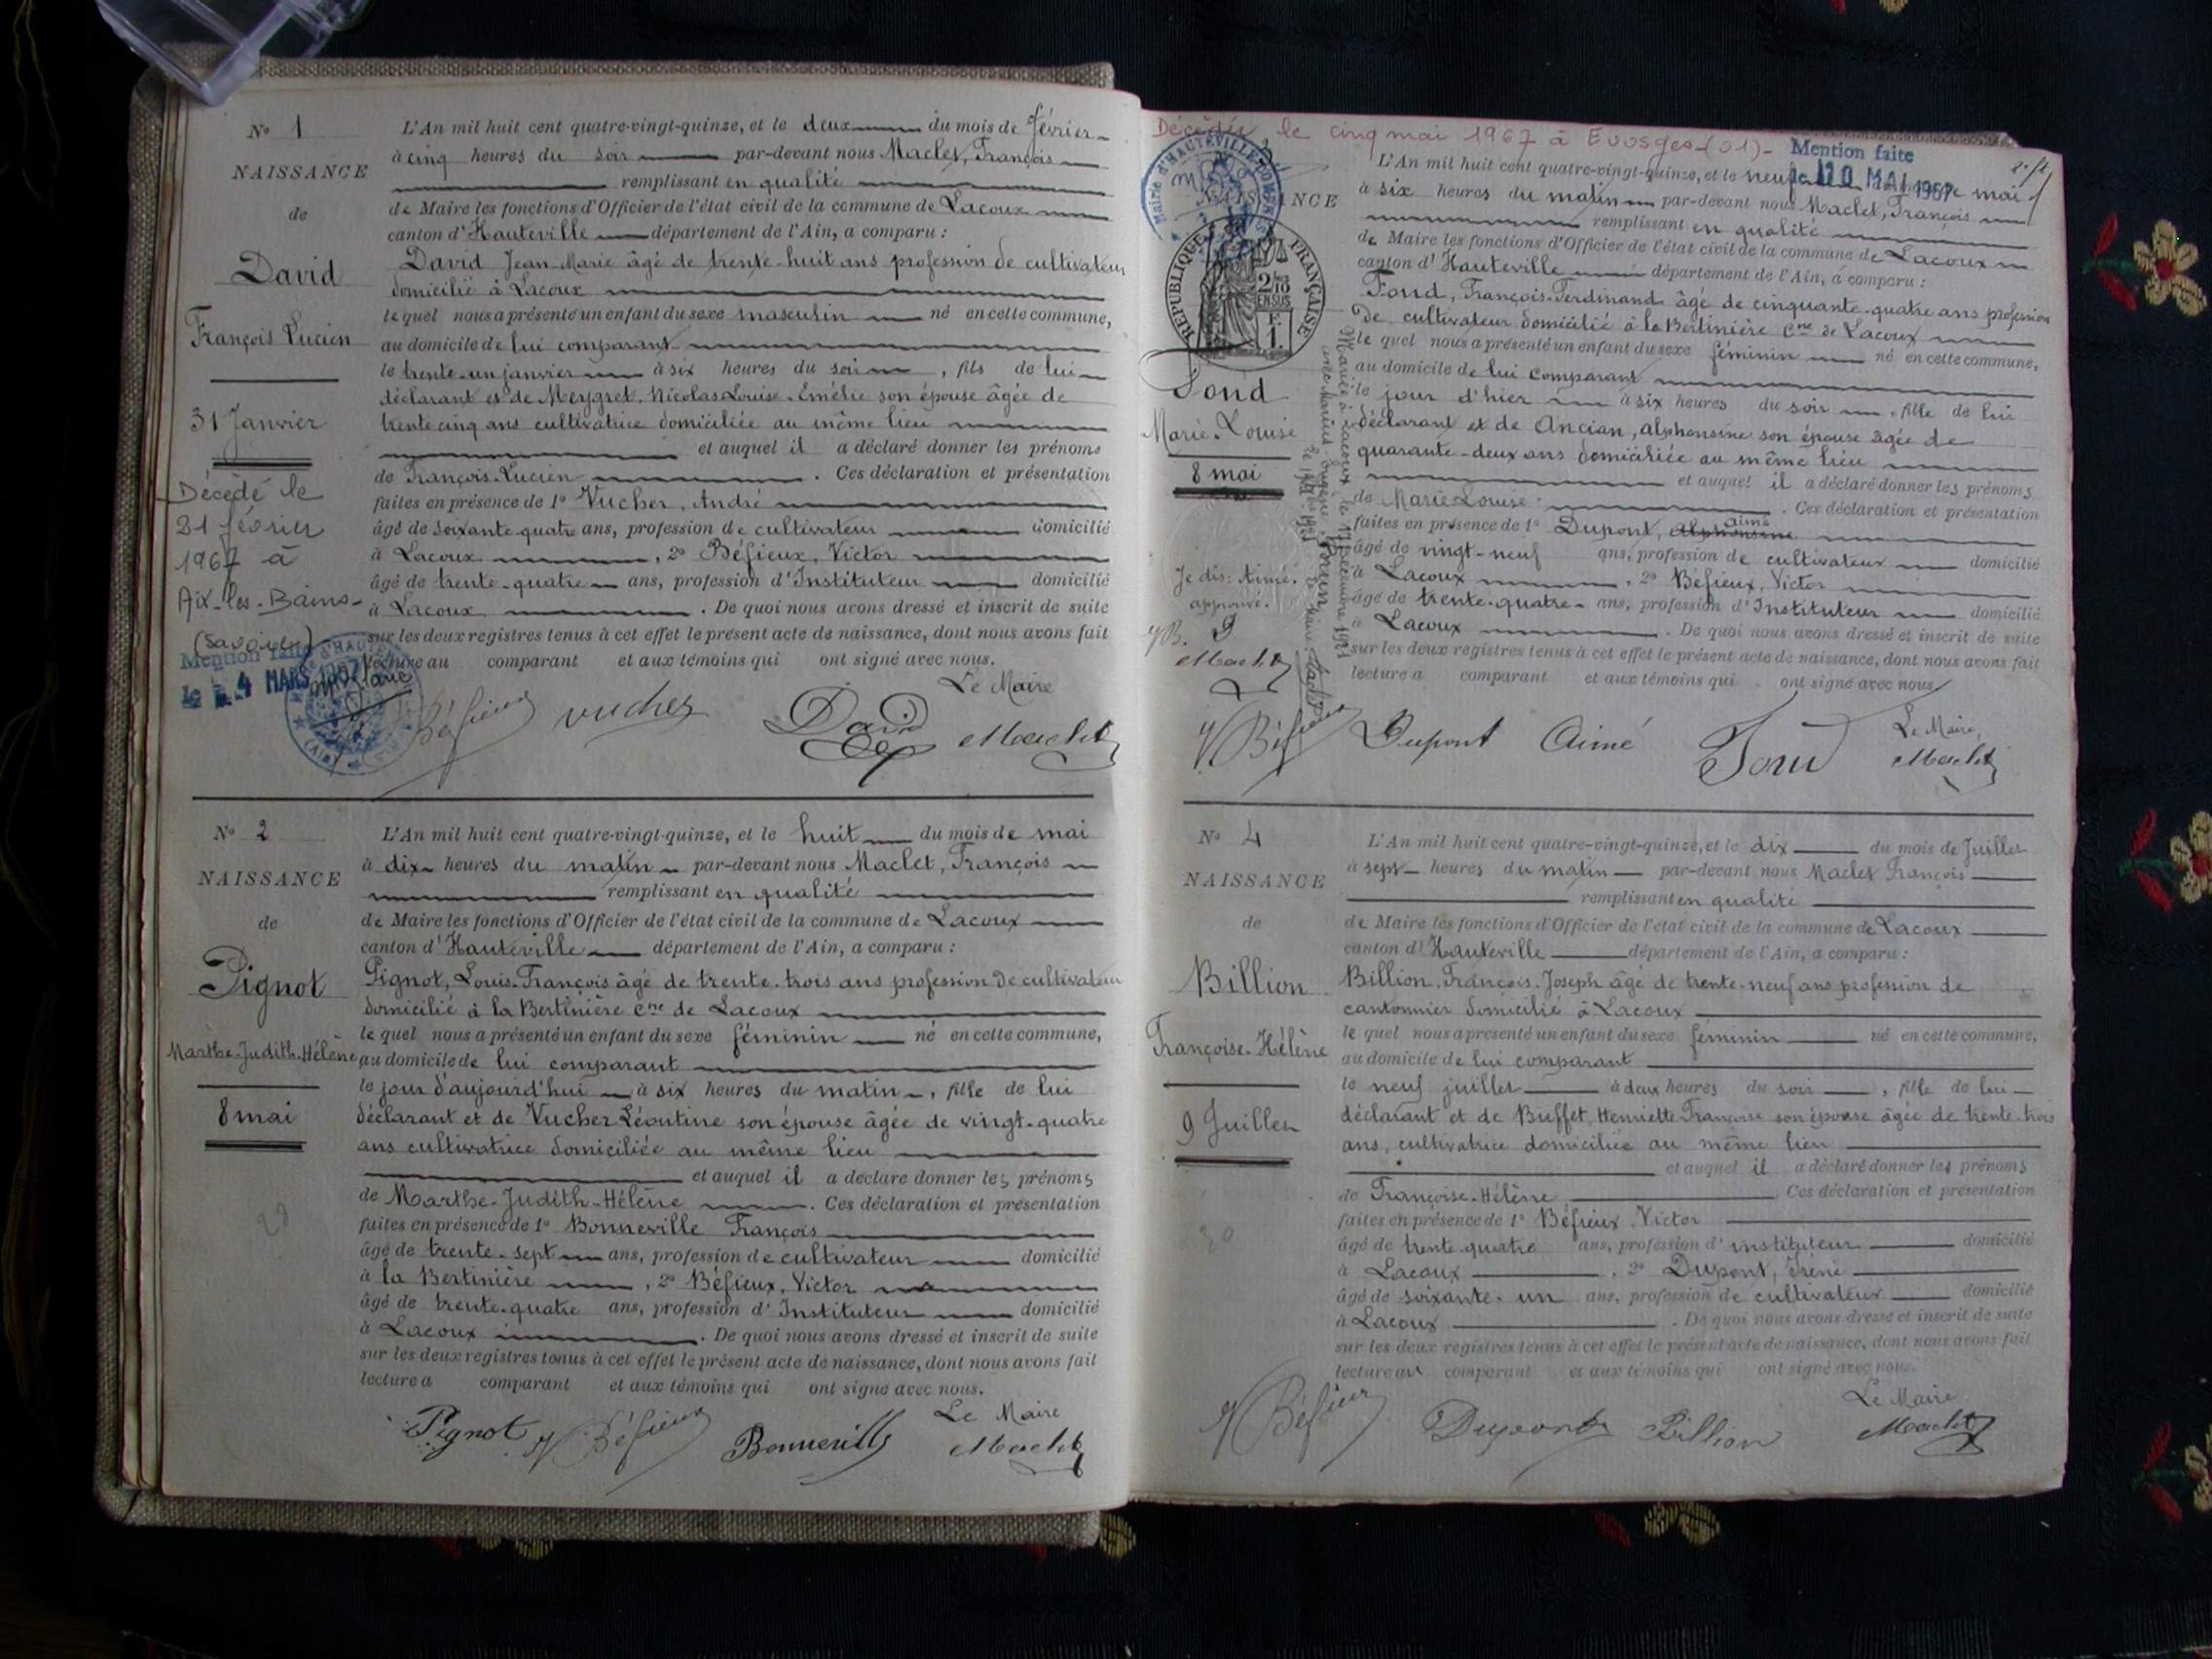 N° 1
NAISSANCE
de
David
François Lucien
31 Janvier
Décédé le
21 février
1967 à
Aix-les-Bains-
(Savoie)
Mention faite
le 4 MARS 1967
L'An mil huit cent quatre-vingt-quinze, et le deux du mois de février
à cinq heures du soir par-devant nous Maclet, François
remplissant en qualité
de Maire les fonctions d'Officier de l'état civil de la commune de Lacoux
canton d'Hauteville département de l'Ain, a comparu :
David Jean-Marie âgé de trente-huit ans profession de cultivateur
domicilié à Lacoux
lequel nous a présenté un enfant du sexe masculin né en cette commune,
au domicile de lui comparant
le trente-un janvier à six heures du soir, fils de lui
déclarant et de Meygret, Nicolas Louise-Emélie son épouse âgée de
trente cinq ans cultivatrice domiciliée au même lieu
et auquel il a déclaré donner les prénoms
de François-Lucien. Ces déclaration et présentation
faites en présence de 1° Vucher, André
âgé de soixante-quatre ans, profession de cultivateur domicilié
à Lacoux, 2° Béfieux, Victor
âgé de trente-quatre ans, profession d'Instituteur domicilié
à Lacoux. De quoi nous avons dressé et inscrit de suite
sur les deux registres tenus à cet effet le présent acte de naissance, dont nous avons fait
lecture au comparant et aux témoins qui ont signé avec nous.
Le Maire
Béfieux Vucher David Maclet
N° 2
NAISSANCE
de
Pignot
Marthe-Judith-Hélène
8 mai
L'An mil huit cent quatre-vingt-quinze, et le huit du mois de mai
à dix heures du matin par-devant nous Maclet, François
remplissant en qualité
de Maire les fonctions d'Officier de l'état civil de la commune de Lacoux
canton d'Hauteville département de l'Ain, a comparu :
Pignot, Louis-François âgé de trente-trois ans profession de cultivateur
domicilié à la Bertinière Cne de Lacoux
lequel nous a présenté un enfant du sexe féminin né en cette commune,
au domicile de lui comparant
le jour d'aujourd'hui à six heures du matin, fille de lui
déclarant et de Vucher Léontine son épouse âgée de vingt-quatre
ans cultivatrice domiciliée au même lieu
et auquel il a déclaré donner les prénoms
de Marthe-Judith-Hélène. Ces déclaration et présentation
faites en présence de 1° Bonneville François
âgé de trente-sept ans, profession de cultivateur domicilié
à la Bertinière, 2° Béfieux, Victor
âgé de trente-quatre ans, profession d'Instituteur domicilié
à Lacoux. De quoi nous avons dressé et inscrit de suite
sur les deux registres tenus à cet effet le présent acte de naissance, dont nous avons fait
lecture a comparant et aux témoins qui ont signé avec nous.
Le Maire
Pignot V Béfieux Bonneville Maclet
Décédée le cinq mai 1967 à Evosges-(01)-
Mention faite
le 10 MAI 1967
RÉPUBLIQUE FRANÇAISE
2/10 EN SUS
Fond
Marie-Louise
8 mai
Je dis: Aimé.
approuvé.
Maclet
L'An mil huit cent quatre-vingt-quinze, et le neuf mai
à six heures du matin par-devant nous Maclet, François
remplissant en qualité
de Maire les fonctions d'Officier de l'état civil de la commune de Lacoux
canton d'Hauteville département de l'Ain, a comparu :
Fond, François-Ferdinand âgé de cinquante-quatre ans profession
de cultivateur domicilié à la Bertinière Cne de Lacoux
lequel nous a présenté un enfant du sexe féminin né en cette commune,
au domicile de lui comparant
le jour d'hier à six heures du soir, fille de lui
déclarant et de Ancian, alphonsine son épouse âgée de
quarante-deux ans domiciliée au même lieu
et auquel il a déclaré donner les prénoms
de Marie-Louise. Ces déclaration et présentation
faites en présence de 1° Dupont, alphonsine aimé
âgé de vingt-neuf ans, profession de cultivateur domicilié
à Lacoux, 2° Béfieux, Victor
âgé de trente-quatre ans, profession d'Instituteur domicilié
à Lacoux. De quoi nous avons dressé et inscrit de suite
sur les deux registres tenus à cet effet le présent acte de naissance, dont nous avons fait
lecture a comparant et aux témoins qui ont signé avec nous
Le Maire,
V Béfieux Dupont Aimé Fond Maclet
N° 4
NAISSANCE
de
Billion
Françoise-Hélène
9 Juillet
L'An mil huit cent quatre-vingt-quinze, et le dix du mois de Juillet
à sept heures du matin par-devant nous Maclet François
remplissant en qualité
de Maire les fonctions d'Officier de l'état civil de la commune de Lacoux
canton d'Hauteville département de l'Ain, a comparu :
Billion, François-Joseph âgé de trente-neuf ans profession de
cantonnier domicilié à Lacoux
lequel nous a présenté un enfant du sexe féminin né en cette commune,
au domicile de lui comparant
le neuf juillet à deux heures du soir, fille de lui
déclarant et de Buffet, Henriette Françoise son épouse âgée de trente-trois
ans, cultivatrice domiciliée au même lieu
et auquel il a déclaré donner les prénoms
de Françoise-Hélène Ces déclaration et présentation
faites en présence de 1° Béfieux, Victor
âgé de trente-quatre ans, profession d'instituteur domicilié
à Lacoux, 2° Dupont, Irène
âgé de soixante-un ans, profession de cultivateur domicilié
à Lacoux. De quoi nous avons dressé et inscrit de suite
sur les deux registres tenus à cet effet le présent acte de naissance, dont nous avons fait
lecture au comparant et aux témoins qui ont signé avec nous.
Le Maire
V Béfieux Dupont Billion Maclet